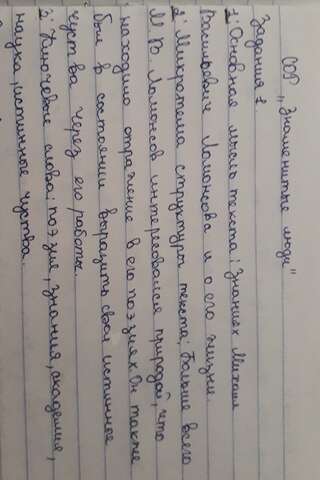 СОР „Знаменитые люди"
Задания 1
1: Основная мысль текста: Знаниях Михаил
Васильевиче Ломоносва и о его жизни
2: Микротема структуры текста: Больше всего
М.В. Ломоносов интересовался природой, что
находило отражение в его поэзиях. Он также
был в состоянии выразить свои истинное
чуства через его работы.
3: Ключевые слова: поэзие, знания, академие,
наука, истинное чуства.